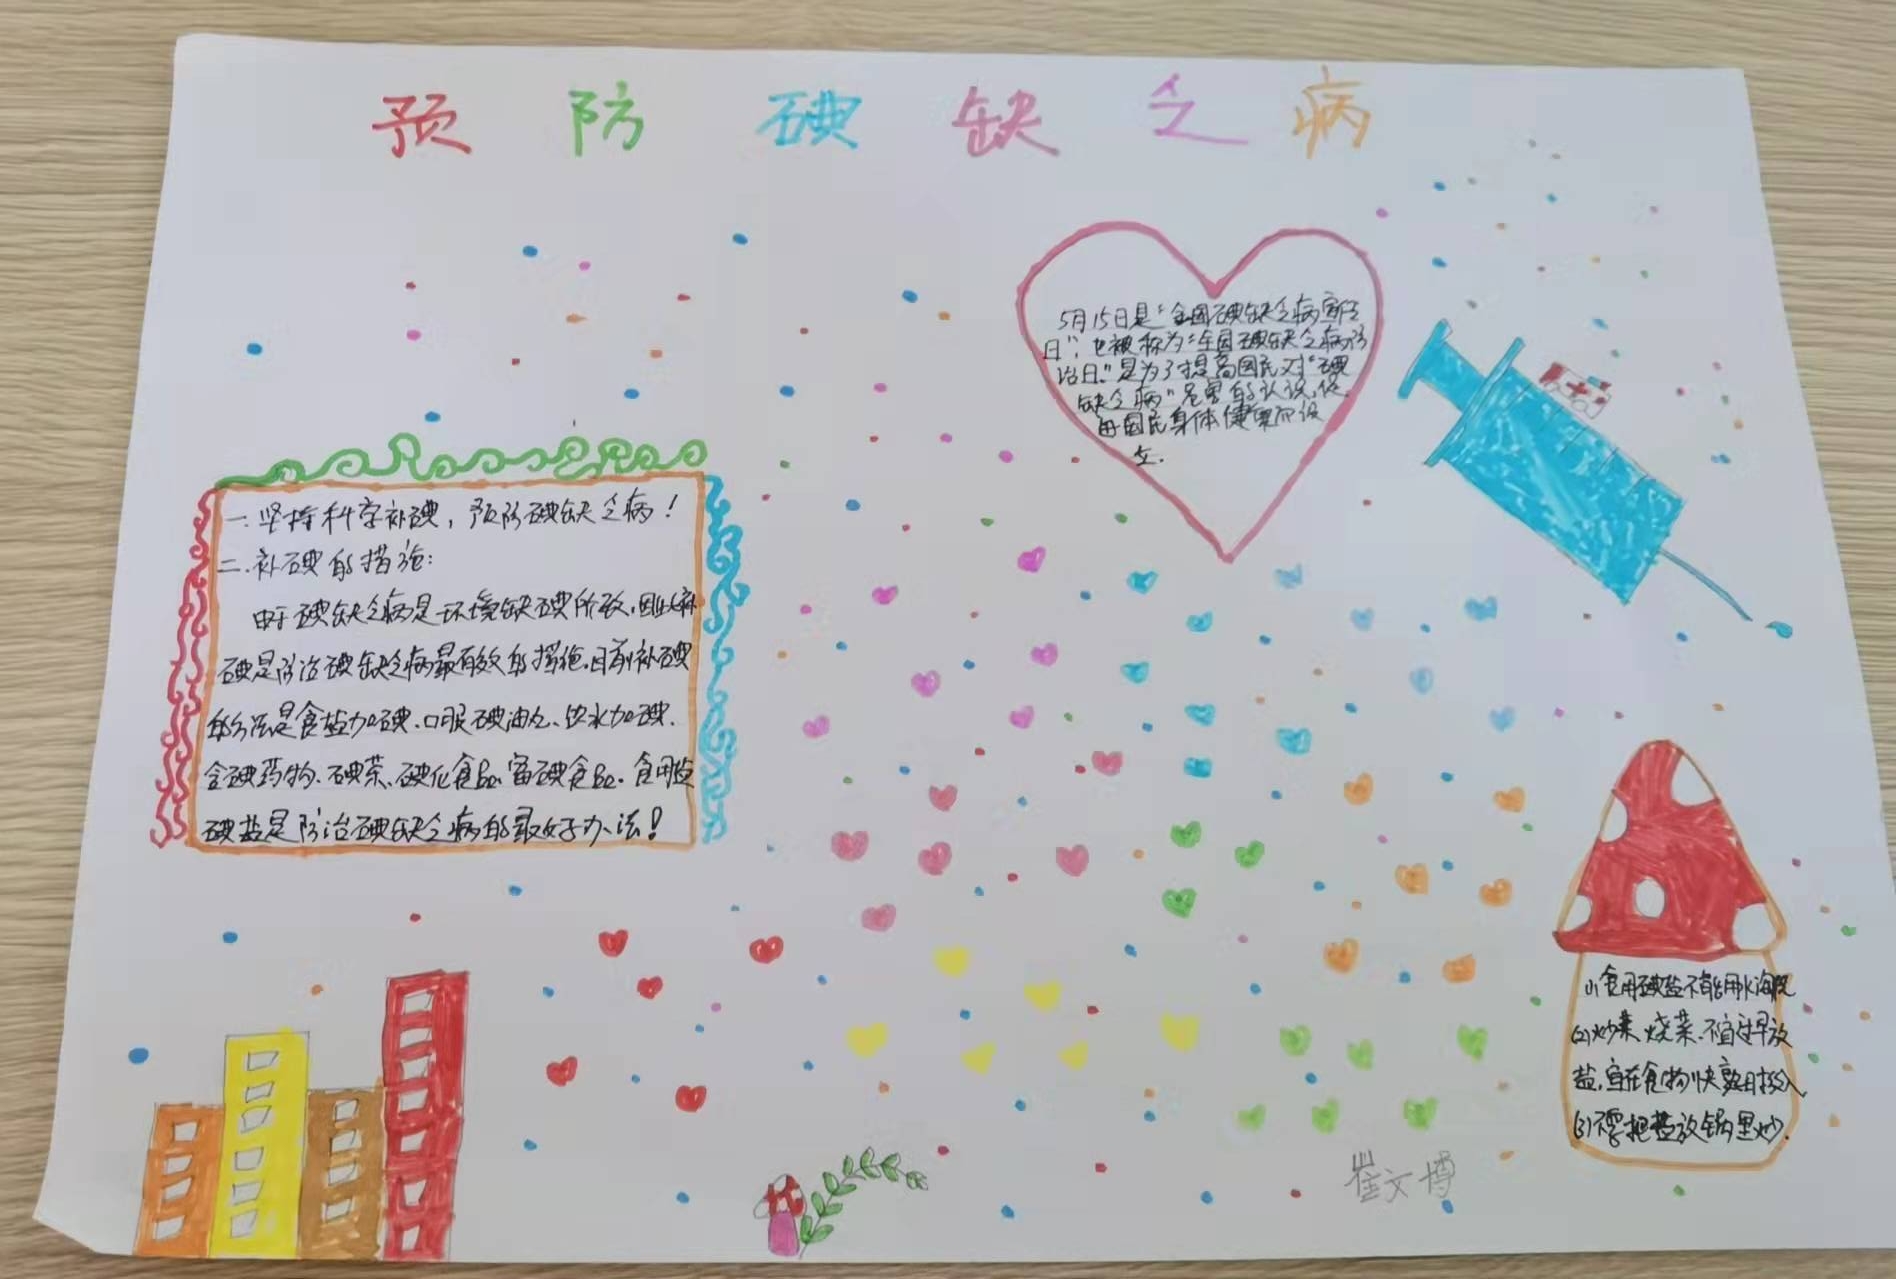 预防碘缺乏病
5月15日是“全国碘缺乏病宣传
日”，也被称为“全国碘缺乏病防
治日”是为了提高国民对“碘
缺乏病”危害的认识，促
国民身体健康而设
立.
一.坚持科学补碘，预防碘缺乏病！
二.补碘的措施：
由于碘缺乏病是环境缺碘所致.因此补
碘是防治碘缺乏病最有效的措施.目前补碘
的方法是食盐加碘、口服碘油丸、饮水加碘、
含碘药物、碘茶、碘化食品、富碘食品.食用
碘盐是防治碘缺乏病的最好办法！
(1)食用碘盐不能用水淘洗
(2)炒菜、烧菜.不宜过早放
盐,宜在食物快熟时放入
(3)不要把盐放锅里炒.
崔文博